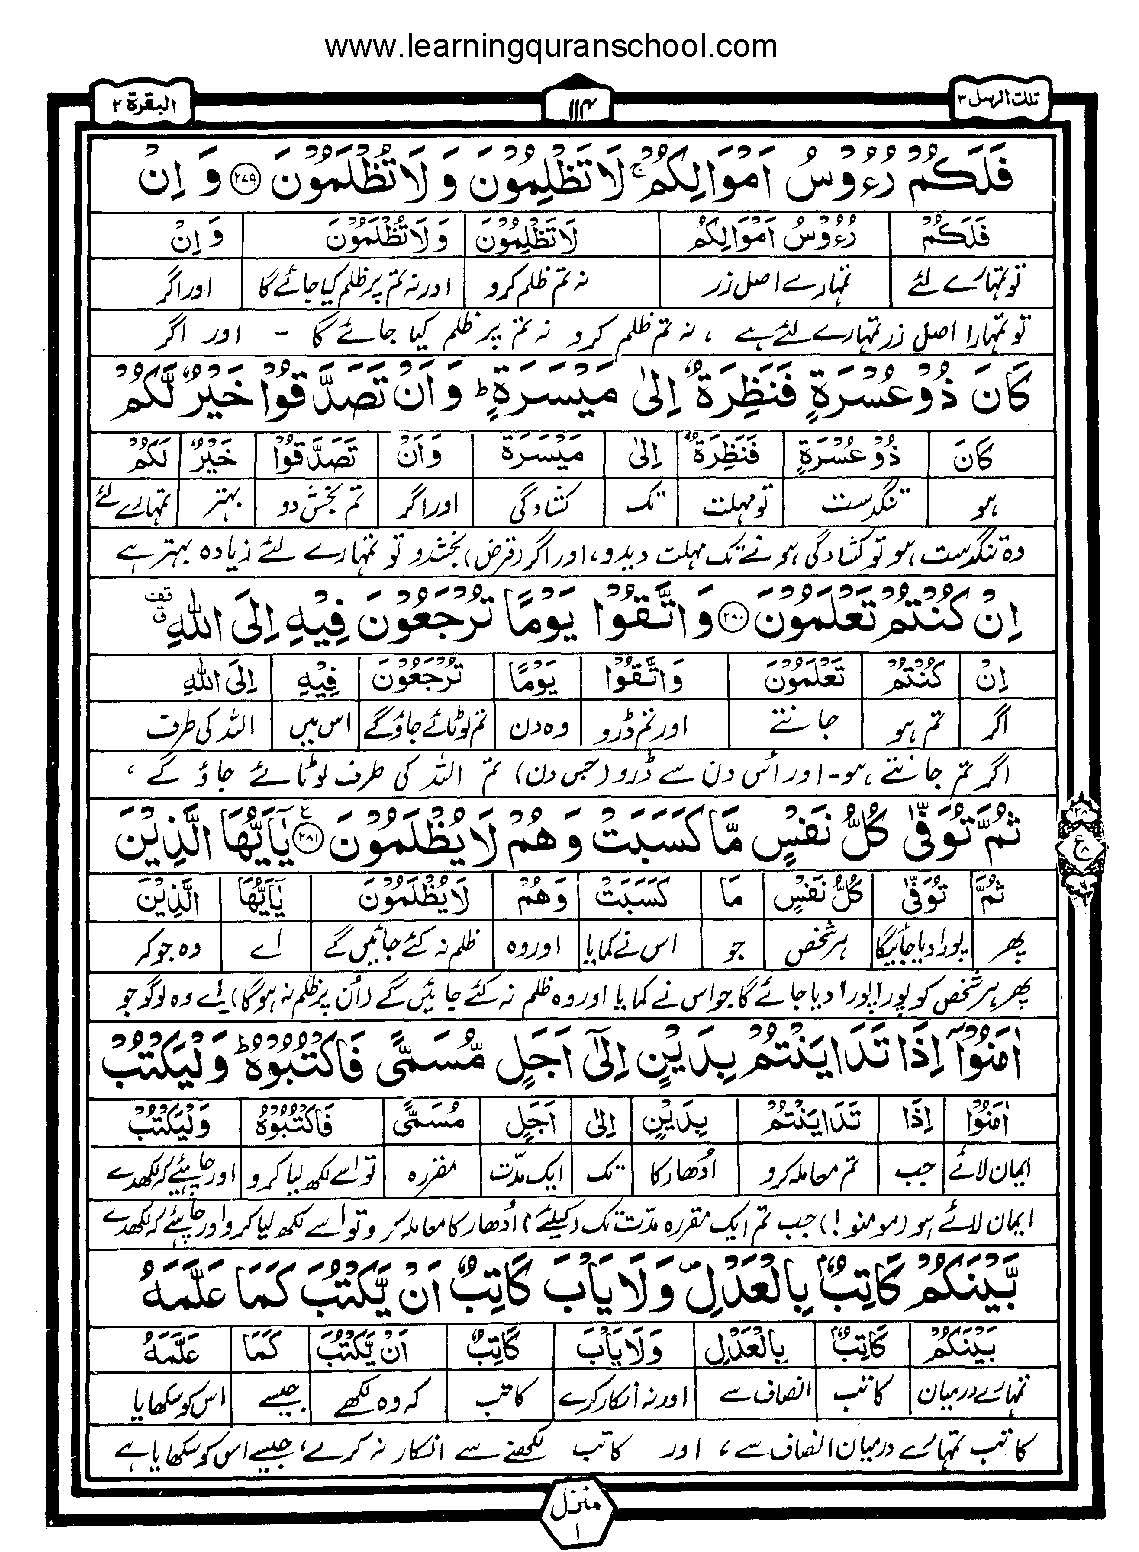 www.learningquranschool.com
تلك الرسل ۳
۱۱۴
البقرة ۲
فَلَكُمْ رُءُوْسُ اَمْوَالِكُمْ ۚ لَا تَظْلِمُوْنَ وَ لَا تُظْلَمُوْنَ ﴿۲۷۹﴾ وَ اِنْ
فَلَكُمْ رُءُوْسُ اَمْوَالِكُمْ لَا تَظْلِمُوْنَ وَ لَا تُظْلَمُوْنَ وَ اِنْ
تو تمہارے لئے تمہارے اصل زر نہ تم ظلم کرو اور نہ تم پر ظلم کیا جائے گا اور اگر
تو تمہارا اصل زر تمہارے لئے ہے ، نہ تم ظلم کرو نہ تم پر ظلم کیا جائے گا - اور اگر
كَانَ ذُوْ عُسْرَةٍ فَنَظِرَةٌ اِلٰى مَيْسَرَةٍ ؕ وَ اَنْ تَصَدَّقُوْا خَيْرٌ لَّكُمْ
كَانَ ذُوْ عُسْرَةٍ فَنَظِرَةٌ اِلٰى مَيْسَرَةٍ وَ اَنْ تَصَدَّقُوْا خَيْرٌ لَكُمْ
ہو تنگدست تو مہلت تک کشادگی اور اگر تم بخش دو بہتر تمہارے لئے
وہ تنگدست ہو تو کشادگی ہونے تک مہلت دیدو، اور اگر (قرض) بخشدو تو تمہارے لئے زیادہ بہتر ہے
اِنْ كُنْتُمْ تَعْلَمُوْنَ ﴿۲۸۰﴾ وَ اتَّقُوْا يَوْمًا تُرْجَعُوْنَ فِيْهِ اِلَى اللّٰهِ
اِنْ كُنْتُمْ تَعْلَمُوْنَ وَ اتَّقُوْا يَوْمًا تُرْجَعُوْنَ فِيْهِ اِلَى اللّٰهِ
اگر تم ہو جانتے اور تم ڈرو وہ دن تم لوٹائے جاؤگے اس میں اللہ کی طرف
اگر تم جانتے ہو- اور اُس دن سے ڈرو (جس دن) تم اللہ کی طرف لوٹائے جاؤ گے ،
ثُمَّ تُوَفّٰى كُلُّ نَفْسٍ مَّا كَسَبَتْ وَ هُمْ لَا يُظْلَمُوْنَ ﴿۲۸۱﴾ يٰۤاَيُّهَا الَّذِيْنَ
ثُمَّ تُوَفّٰى كُلُّ نَفْسٍ مَا كَسَبَتْ وَ هُمْ لَا يُظْلَمُوْنَ يٰۤاَيُّهَا الَّذِيْنَ
پھر پورا دیا جائیگا ہر شخص جو اس نے کمایا اور وہ ظلم نہ کئے جائیں گے اے وہ جو کہ
پھر ہر شخص کو پورا پورا دیا جائے گا جو اس نے کمایا اور وہ ظلم نہ کئے جائیں گے (اُن پر ظلم نہ ہوگا) اے وہ لوگو جو
اٰمَنُوْۤا اِذَا تَدَايَنْتُمْ بِدَيْنٍ اِلٰۤى اَجَلٍ مُّسَمًّى فَاكْتُبُوْهُ ؕ وَ لْيَكْتُبْ
اٰمَنُوْا اِذَا تَدَايَنْتُمْ بِدَيْنٍ اِلٰى اَجَلٍ مُسَمًّى فَاكْتُبُوْهُ وَ لْيَكْتُبْ
ایمان لائے جب تم معاملہ کرو اُدھار کا تک ایک مدّت مقررہ تو اسے لکھ لیا کرو اور چاہیئے کہ لکھدے
ایمان لائے ہو (مومنو!) جب تم ایک مقررہ مدّت تک (کیلئے) اُدھار کا معاملہ کرو تو اسے لکھ لیا کرو اور چاہیئے کہ لکھدے
بَّيْنَكُمْ كَاتِبٌۢ بِالْعَدْلِ ۪ وَ لَا يَاْبَ كَاتِبٌ اَنْ يَّكْتُبَ كَمَا عَلَّمَهُ
بَيْنَكُمْ كَاتِبٌ بِالْعَدْلِ وَ لَا يَاْبَ كَاتِبٌ اَنْ يَّكْتُبَ كَمَا عَلَّمَهُ
تمہارے درمیان کاتب انصاف سے اور نہ انکار کرے کاتب کہ وہ لکھے جیسے اس کو سکھایا
کاتب تمہارے درمیان انصاف سے ، اور کاتب لکھنے سے انکار نہ کرے، جیسے اس کو سکھایا ہے
منزل ۱